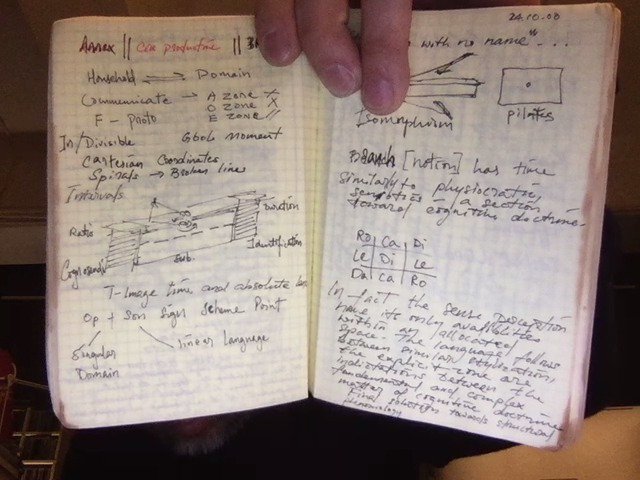 Annex || Con productive ||
Household Domain
Communicate → A zone X
O zone X
F - proto E zone //
In/Divisible Gbob moment
Cartesian Coordinates
Spirals → Broken lines
Intervals
Direction
Ratio
Identification
Sub.
T-Image time and absolute
Op + Son Sign Scheme Point
Singular linear language
Domain
24.10.08
with no name" ...
Isomorphism pilates
[notion] has time
similarly to physiocratic
a section
toward cognitive doctrine
Ro | Ca | Di
Le | Di | Le
Do | Ca | Ro
In fact the sense
have its only availabilities
within an allocated
space. The language follows
between similar
the explicit zone are
between the
fundamental any complex
matter of cognitive doctrine
Final solution towards structural